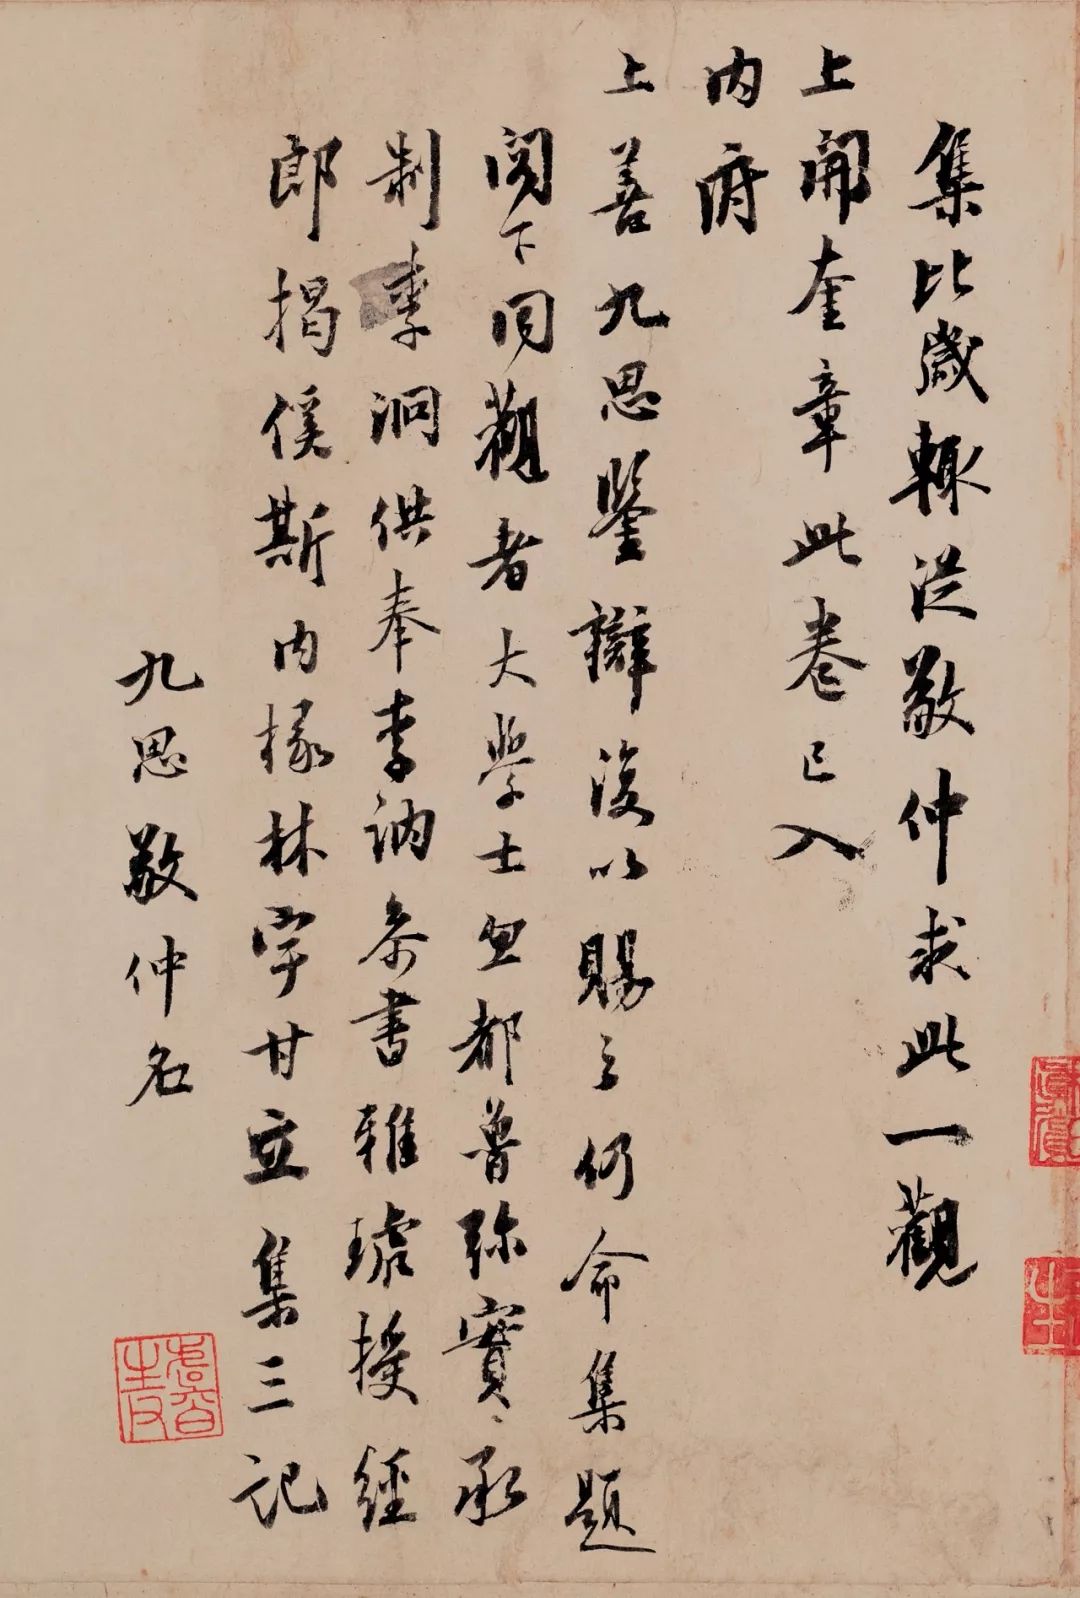 集比歲輒從敬仲求此一觀
上開奎章此卷已入
內府
上善九思鑒辯復以賜之仍命集題
閣下同觀者大學士忽都魯弥實承
制李泂供奉李訥參書雅琥授經
郎揭傒斯內掾林宇甘立集三記
九思敬仲名